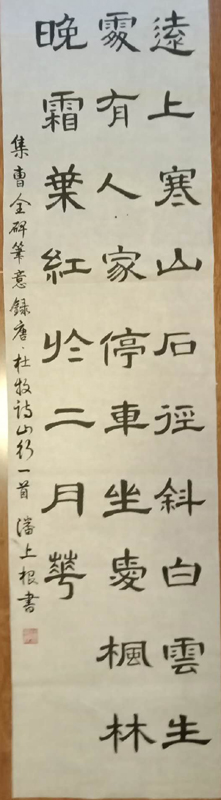 遠上寒山石徑斜白雲生
處有人家停車坐愛楓林
晚霜葉紅於二月華
集曹全碑筆意録唐·杜牧詩山行一首 潘上根書